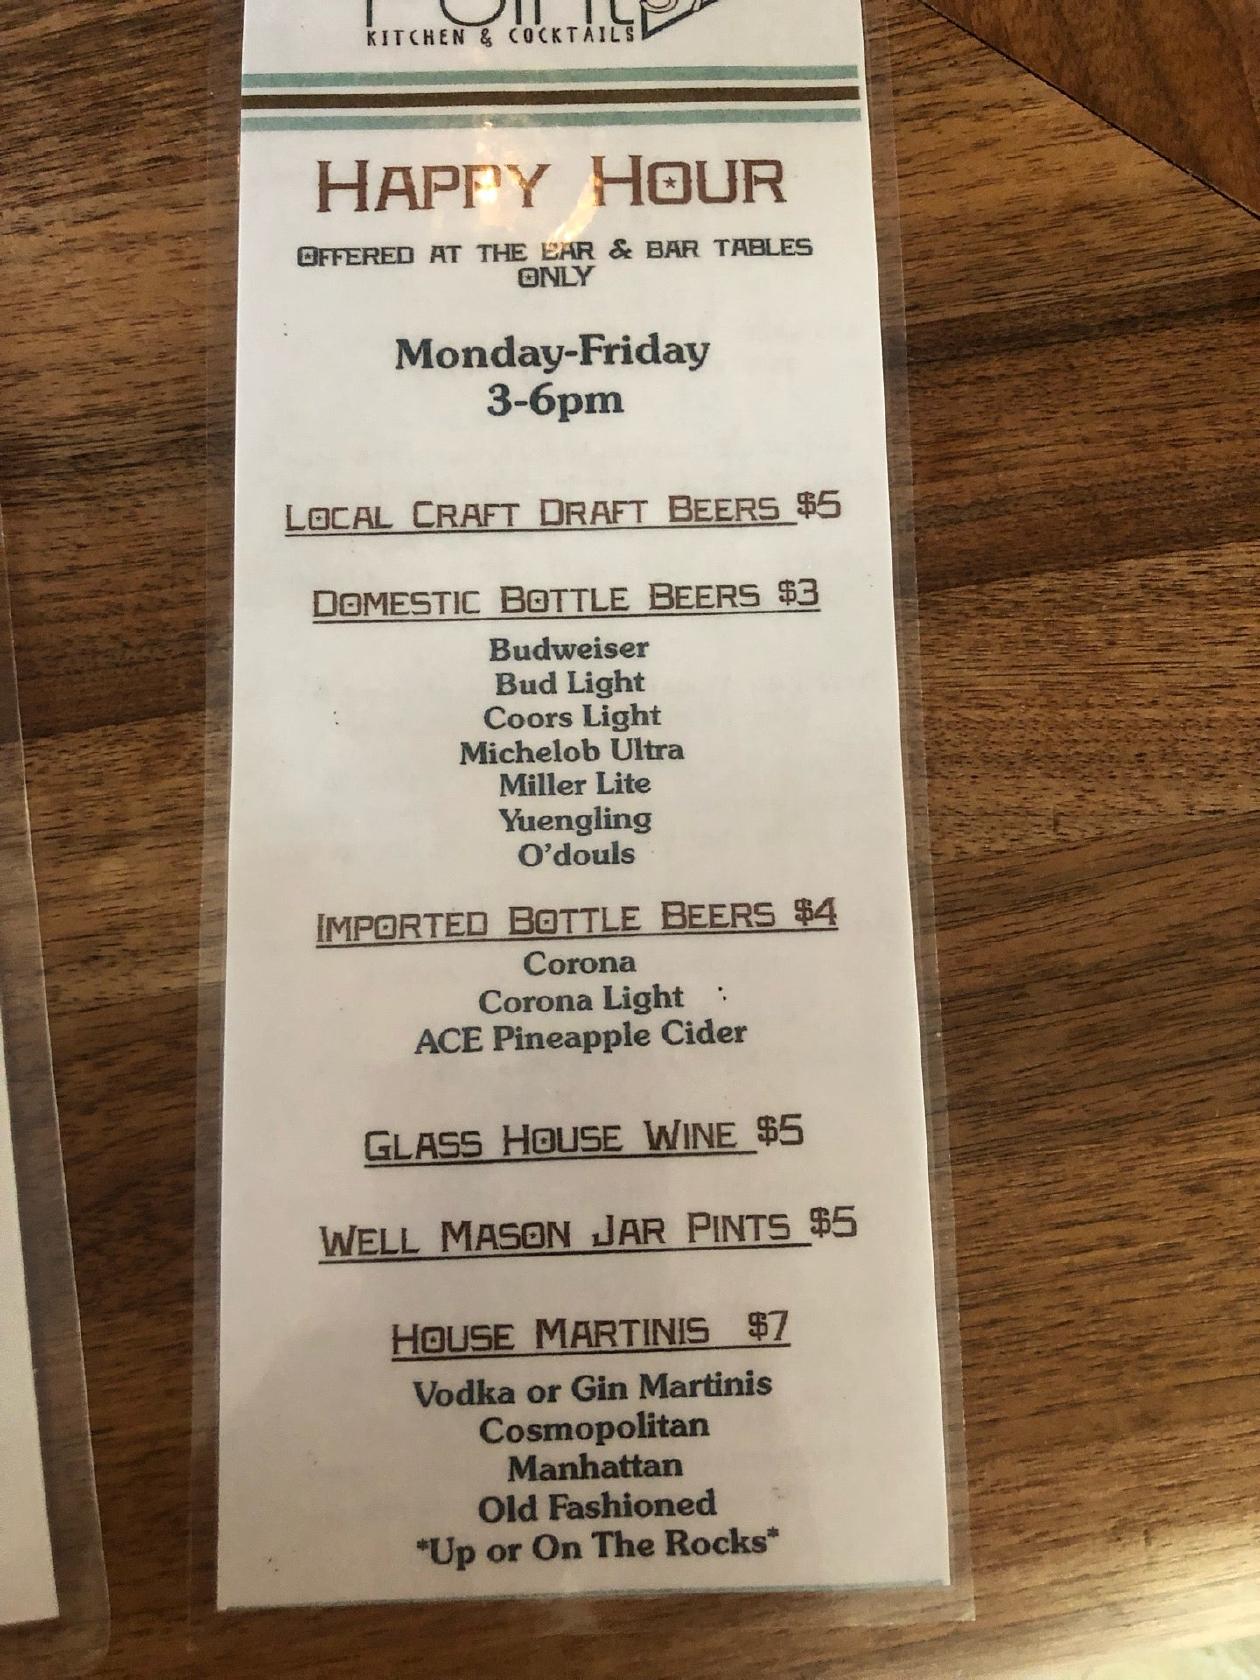 KITCHEN & COCKTAILS
HAPPY HOUR
OFFERED AT THE BAR & BAR TABLES
ONLY
Monday-Friday
3-6pm
LOCAL CRAFT DRAFT BEERS $5
DOMESTIC BOTTLE BEERS $3
Budweiser
Bud Light
Coors Light
Michelob Ultra
Miller Lite
Yuengling
O'douls
IMPORTED BOTTLE BEERS $4
Corona
Corona Light
ACE Pineapple Cider
GLASS HOUSE WINE $5
WELL MASON JAR PINTS $5
HOUSE MARTINIS $7
Vodka or Gin Martinis
Cosmopolitan
Manhattan
Old Fashioned
*Up or On The Rocks*